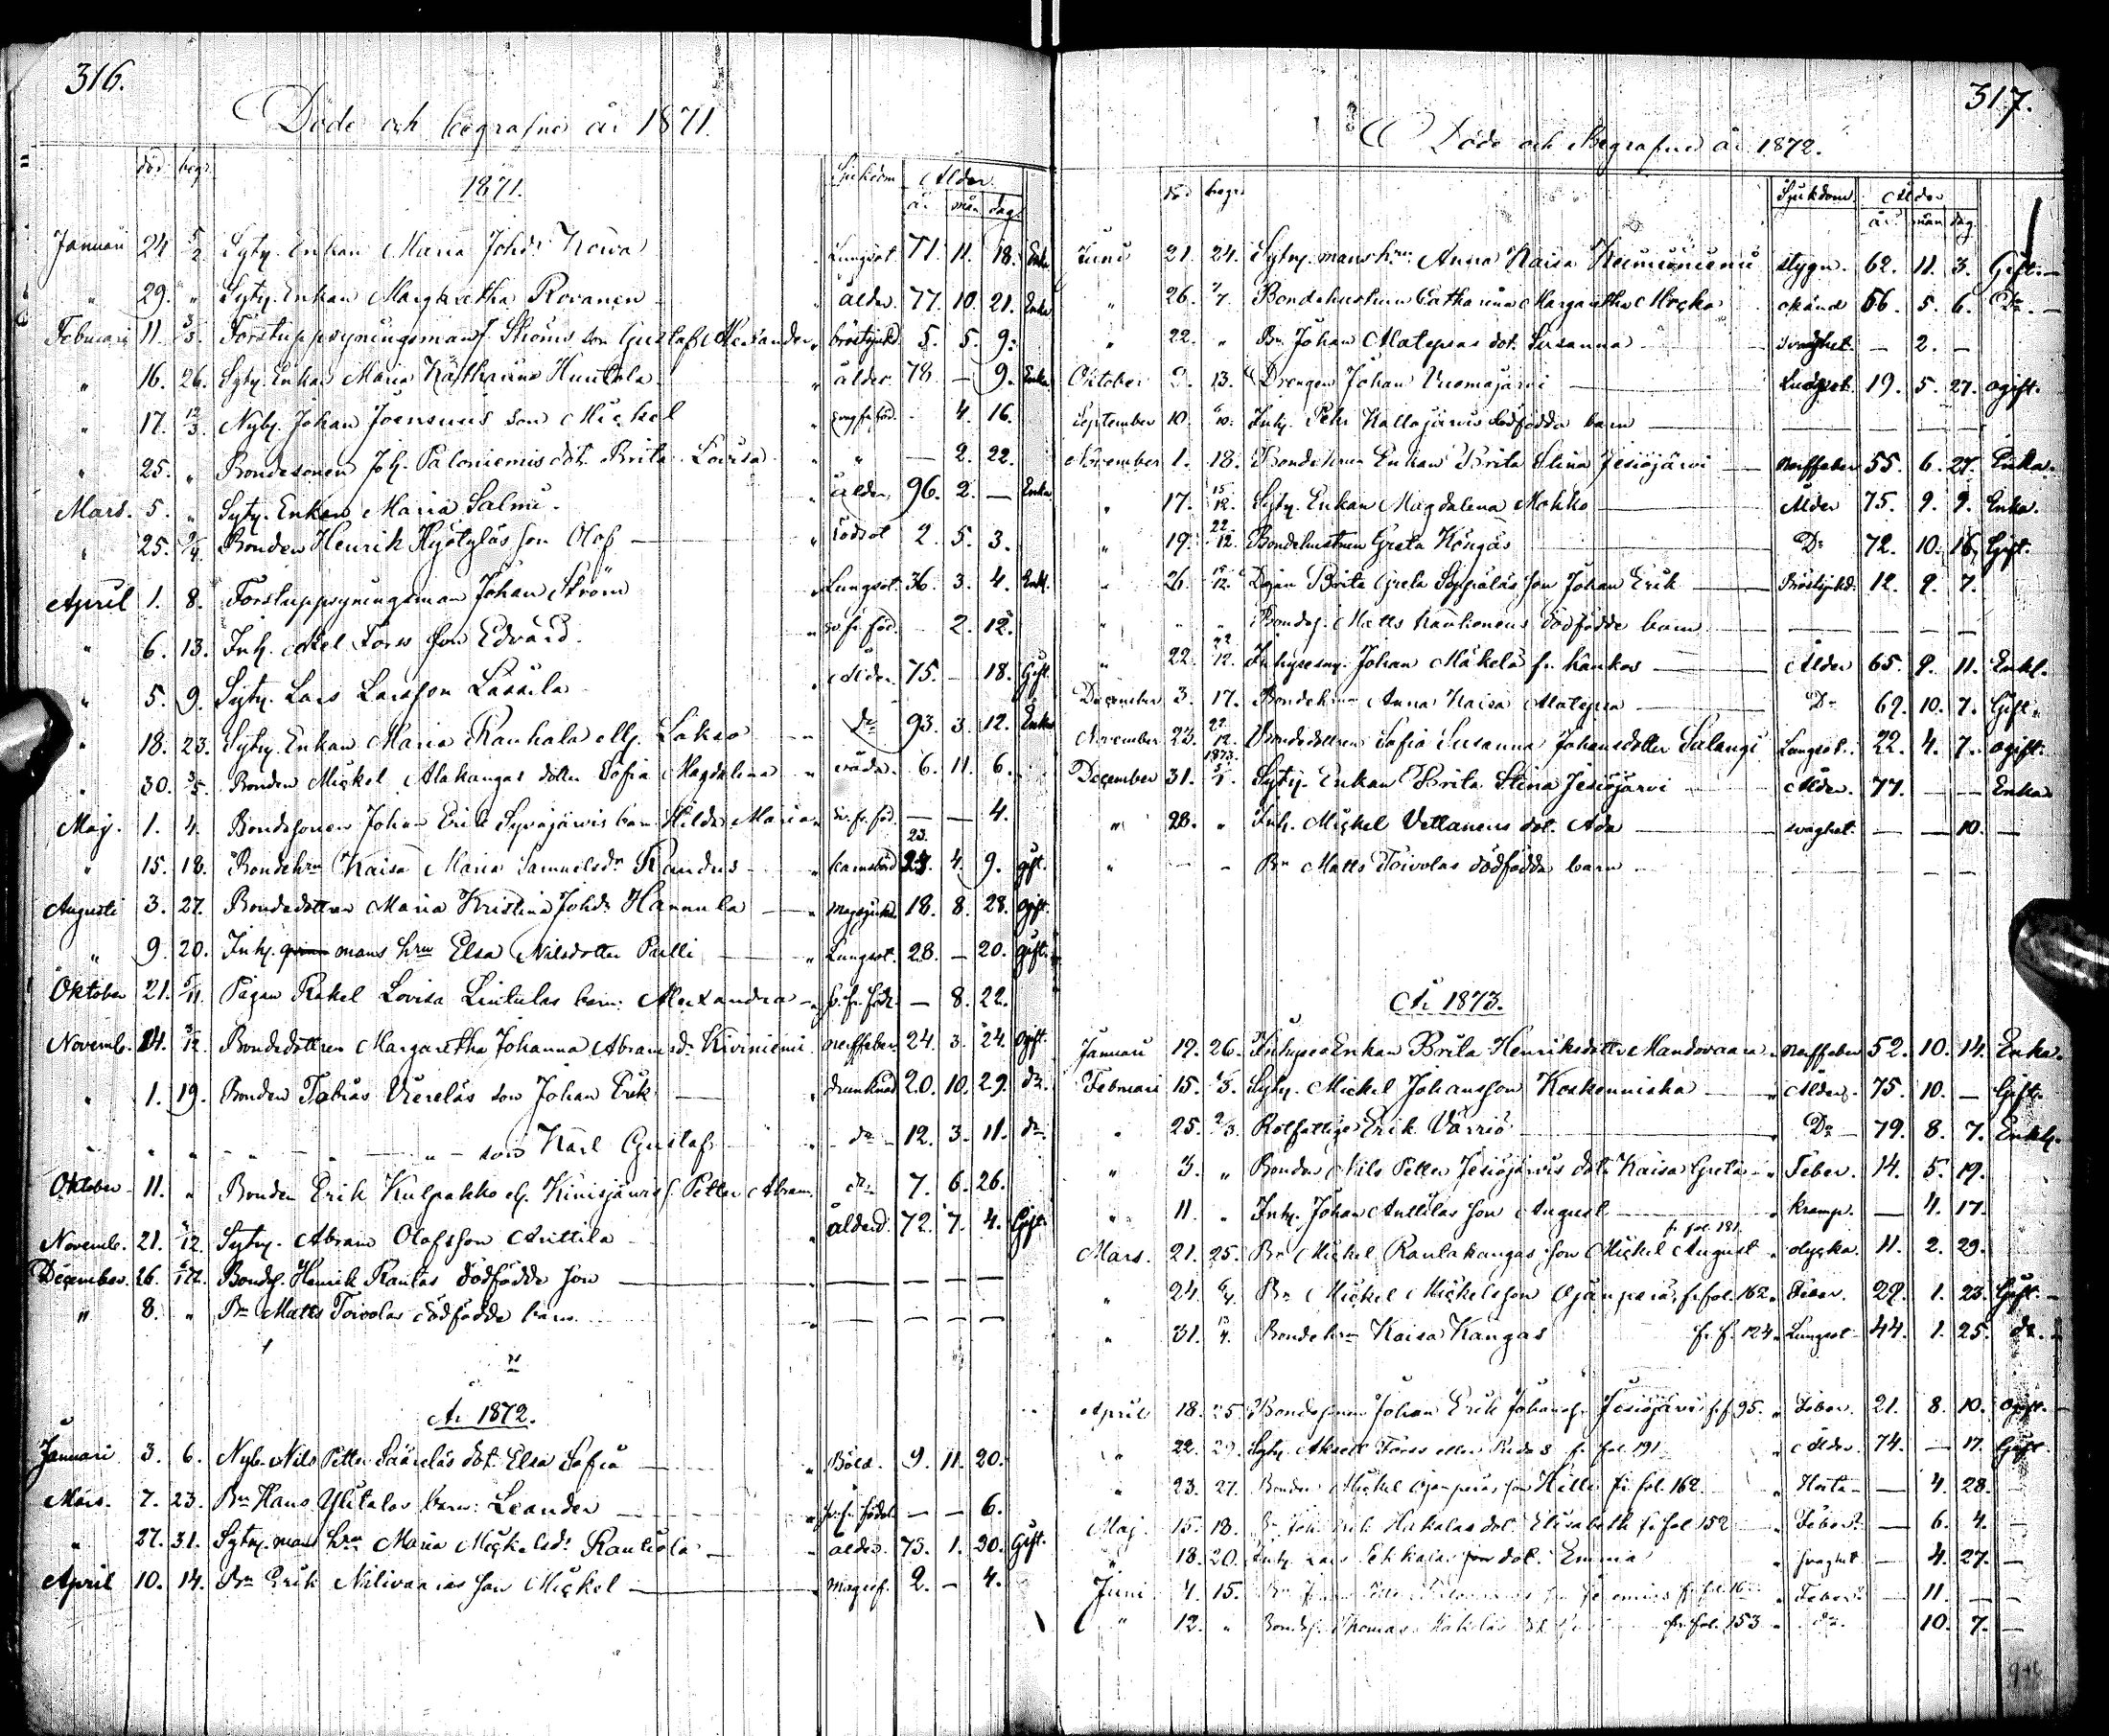 316.
Döde och begrafne år 1871.
död begr. Sjukdom Ålder
1871. år mån dag.
Januari 24 5/2 Sytn. Enkan Maria Johd. Kowa Lungsot 71. 11. 18. Enka
" 29. " Sytn. Enkan Margaretha Rovanen ålder. 77. 10. 21. Enka
Februari 11. 3/3. Forstuppsyningsman J. Ströms son Gustaf Alexander bröstsjukd. 5. 5. 9.
" 16. 26. Sytn. Enkan Maria Katharina Huutola ålder. 78 — 9. Enka
" 17. 12/3. Nyb. Johan Joensuus son Mickel - 4. 16.
" 25. " Bondesonen Joh. Paloniemis dot. Brita Lovisa " — 2. 22.
Mars. 5. " Sytn. Enkan Maria Salmi. ålder 96. 2. — Enka
" 25. 9/4 Bonden Henrik Hyötyläs son Olof — 2. 5. 3.
April 1. 8. Forstuppsyningsman Johan Ström Lungsot. 36. 3. 4. Enkl.
" 6. 13. Inh. Axel Forss son Edvard. sv. fr. föd. 2. 12.
" 5. 9. Sytn. Lars Larsson Lassila Ålder. 75. — 18. Gift.
" 18. 23. Sytn. Enkan Maria Rauhala ell. Lakso do 93. 3. 12. Enka
" 30. 3/5. Bonden Mickel Alakangas dotter Sofia Magdalena 6. 11. 6.
Maj. 1. 4. Bondesonen Johan Erik Syväjärvis barn Hilda Maria sv. fr. föd. — — 4.
23.
" 15. 18. Bondehru Kaisa Maria Samuelsdr Kandus barnsbörd 4. 9. gift.
Augusti 3. 27. Bondedottren Maria Kristina Johdr Hannula — magsjukd. 18. 8. 28. ogift.
" 9. 20. Inh. mans hru Elsa Nilsdotter Palli Lungsot. 28. — 20. gift.
Oktober 21. 5/11 Pigan Rakel Lovisa Lintulas barn: Alexandra sv. fr. föd. — 8. 22.
Novemb. 14. 3/12. Bondedottren Margaretha Johanna Abramsdr Kiviniemi nerffeber 24. 3. 24. ogift.
" 1. 19. Bonden Tobias Viereläs son Johan Erik drunknad 20. 10. 29. do
" " " — " — son Karl Gustaf do 12. 3. 11. do
Oktober 11. " Bonden Erik Kulpakko ell. Kinisjärvis s. Petter Abram. do 7. 6. 26.
Novemb. 21. Sytn. Abram Olofsson Anttila ålderd. 72. 7. 4. Gift.
December. 26. Bonds. Henrik Rantas dödfödde son — — — —
" 8. " Bn Matts Toivolas dödfödda barn — — — —
År 1872.
Januari 3. 6. Nyb. Nils Petter Säärelas dot. Elsa Sofia — 9. 11. 20.
Mars. 7. 23. Bn Hans Ylitalos barn: Leander sv. fr. födel. — — 6.
" 27. 31. Sytn. mans hru Maria Mickelsdr Rautiola — ålder. 75. 1. 30. Gift.
April 10. 14. Bn Erik Nilivaaras son Mickel 2. — 4.
317.
Döde och Begrafne år 1872.
död begr. Sjukdom Ålder
år mån dag.
Juni 21. 24. Sytn. manshru Anna Kaisa Kumiuniemi stygn. 62. 11. 3. Gift. —
" 26. 7. Bondehustrun Catharina Margaretha Mocko okänd 56. 5. 6. Do —
" 22. " Bn Johan Alatepsas dot. Susanna svaghet. — 2. —
Oktober 13. Drengen Johan Vuomajärvi Lungsot. 19. 5. 27. ogift.
September 10. Inh. Pehr Kallojärvis dödfödda barn — — — —
November 1. 18. Bondesonen Enkan Brita Stina Jesiöjärvi nerffeber 55. 6. 27. Enka.
" 17. 15/12. Sytn. Enkan Magdalena Mokko Ålder 75. 9. 9. Enka.
" 19. 22/12. Bondehustrun Greta Kongäs Do 72. 10. 16. Gift.
" 26. 15/12. Pigan Brita Greta Seppäläs son Johan Erik — Bröstsjukd. 12. 9. 7.
" " " Bondes. Matts Raukonens dödfödde barn — — — —
" 22. 22/12. Inhysesm. Johan Mäkelä fr. hankos — Ålder 65. 9. 11. Enkl.
December 3. 17. Bondehru Anna Kaisa Alatepsa Do 69. 10. 7. Gift.
November 23. 22/12. Bondedottren Sofia Susanna Johansdotter Salangi Lungsot. 22. 4. 7. ogift.
1873.
December 31. 5/1. Sytn. Enkan Brita Stina Jesiöjärvi Ålder. 77. — — Enka
" 28. " Inh. Mickel Vettanens dot. Ada svaghet. — — 10. —
" — - Bn Matts Toivolas dödfödda barn — — — —
År 1873.
Januari 19. 26. Inhyses Enkan Brita Henriksdotter Mandovaara. Nerffeber 52. 10. 14. Enka.
Februari 15. 2/3. Sytn. Mickel Johansson Koskenniska Ålder. 75. 10. — Gift.
" 25. 2/3. Rotfattige Erik Värriö Do 79. 8. 7. Enkl.
" 3. " Bonden Nils Petter Jesiöjärvis dotr Kaisa Greta Feber. 14. 5. 19.
" 11. " Inh. Johan Anttilas son August Kramp. — 4. 17.
fr. fol. 181.
Mars. 21. 25. Bn Mickel Rautakangas son Mickel August olycka. 11. 2. 29.
" 24. 6/4. Bn Mickel Mickelsson Ojanperä, fr. fol. 162. Feber. 29. 1. 23. Gift. —
" 31. 13/4. Bondehru Kaisa Kangas fr. f. 124. Lungsot 44. 1. 25. do.
April 18. 25. Bondesonen Johan Erik Johanss. Jesiöjärvi fr. f. 95. Feber. 21. 8. 10. ogift. —
" 22. 29. Sytn. Aksel Forss eller fr. fol. 191 Ålder. 74. — 17. Gift
" 23. 27. Bonden Mickel Ojanperäs son Kalle fr. fol. 162. Hosta — — 4. 28. —
Maj. 15. 18. Bn Joh. Erik Hakalas dot. Elisabeth fr. fol. 152 Feber. — 6. 4. —
" 18. 20. Inh. Lars Pekkalas dot. Emma svaghet. — 4. 27. —
Juni 4. 15. Bn Feber. — 11. — —
" 12. " Bonds. Thomas fr. fol. 153 do. 10. 7. —